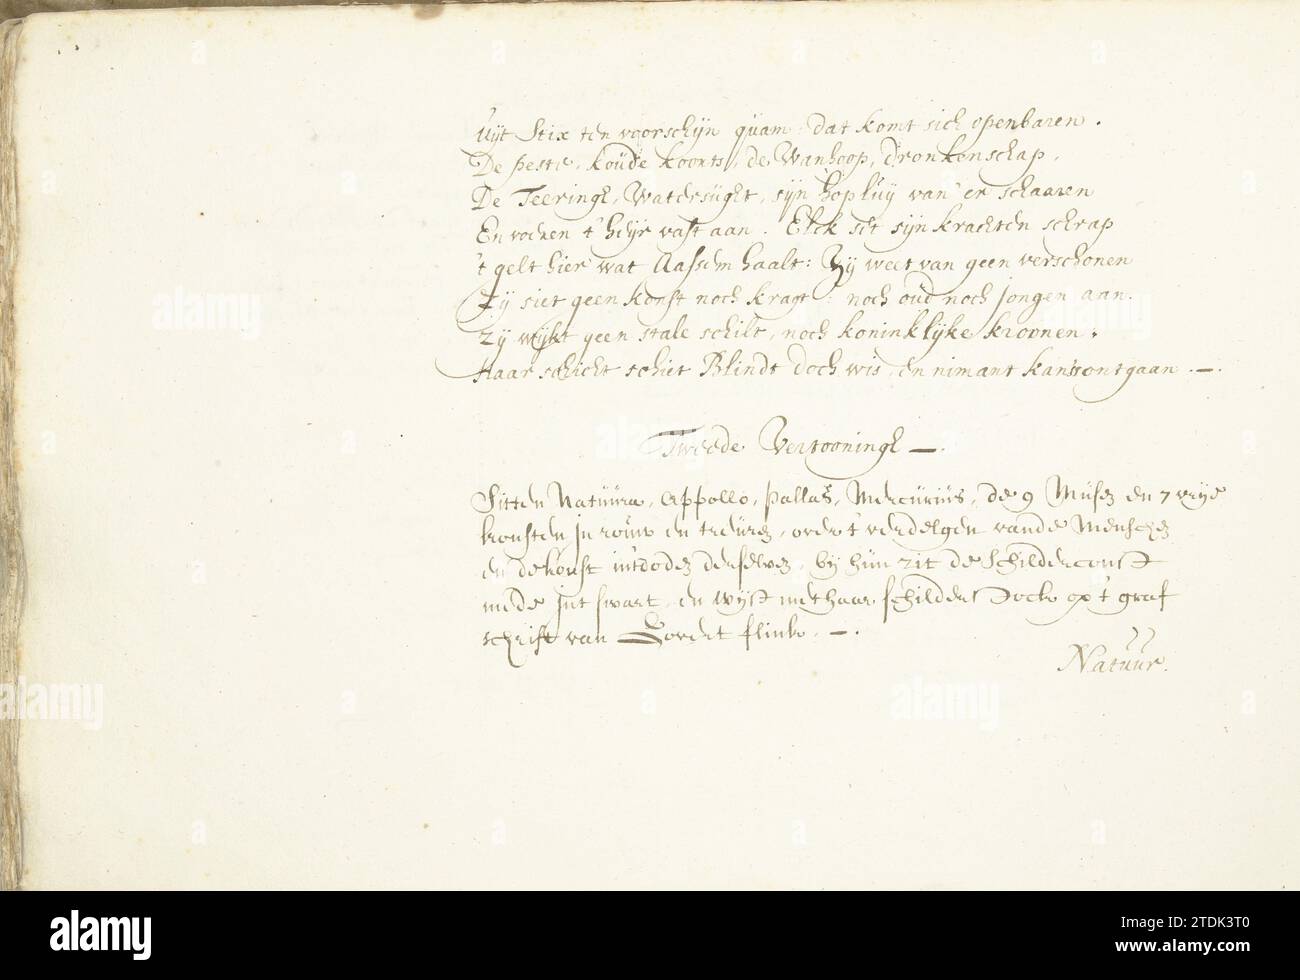 Uijt Stix ten voorschijn quam, dat komt sich openbaren.
De peste, koude koorts, de Wanhoop, dronkenschap,
De Teeringh, Watersught, sijn hopluy van er schaaren
En voeren 't heijr vast aan. Elck set sijn krachten schrap
't gelt hier wat Aassem haalt: Zij weet van geen verschonen
Zij siet geen konst noch kragt: noch oud noch jongen aan.
Zij wijkt geen stale schilt, noch koninklijke kroonen.
Haar schicht schiet Blindt doch wis, en nimant kan't ontgaan. —.
Tweede Vertooningh —.
Sitten Natuura, Appollo, Pallas, Mercurius, de 9 Musen en 7 vrije
konsten in rouw en treuren, over 't verdelgen vande Menschen
en de konst int doden derselven, bij hun zit de Schilderconst
mede int swart, en wijst met haar schilder Stock op 't graf
schrift van Govert flink. —.
Natuur.
alamy
Image ID: 2TDK3T0
www.alamy.com